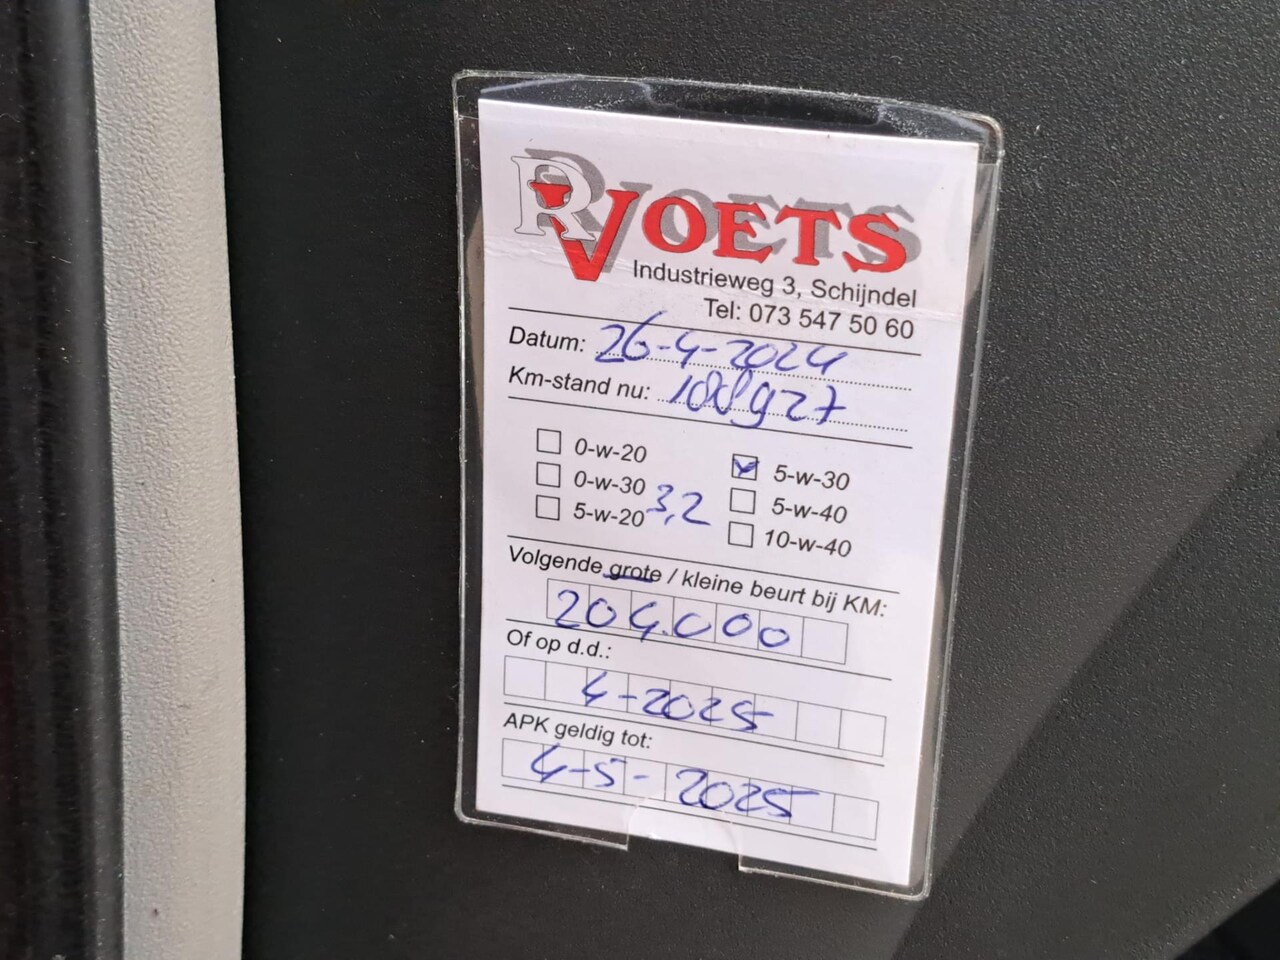 RVOETS
Industrieweg 3, Schijndel
Tel: 073 547 50 60
Datum: 26-4-2024
Km-stand nu: 188927
0-w-20
0-w-30
5-w-20 3,2
5-w-30
5-w-40
10-w-40
Volgende grote / kleine beurt bij KM:
204.000
Of op d.d.:
4-2025
APK geldig tot:
4-5-2025